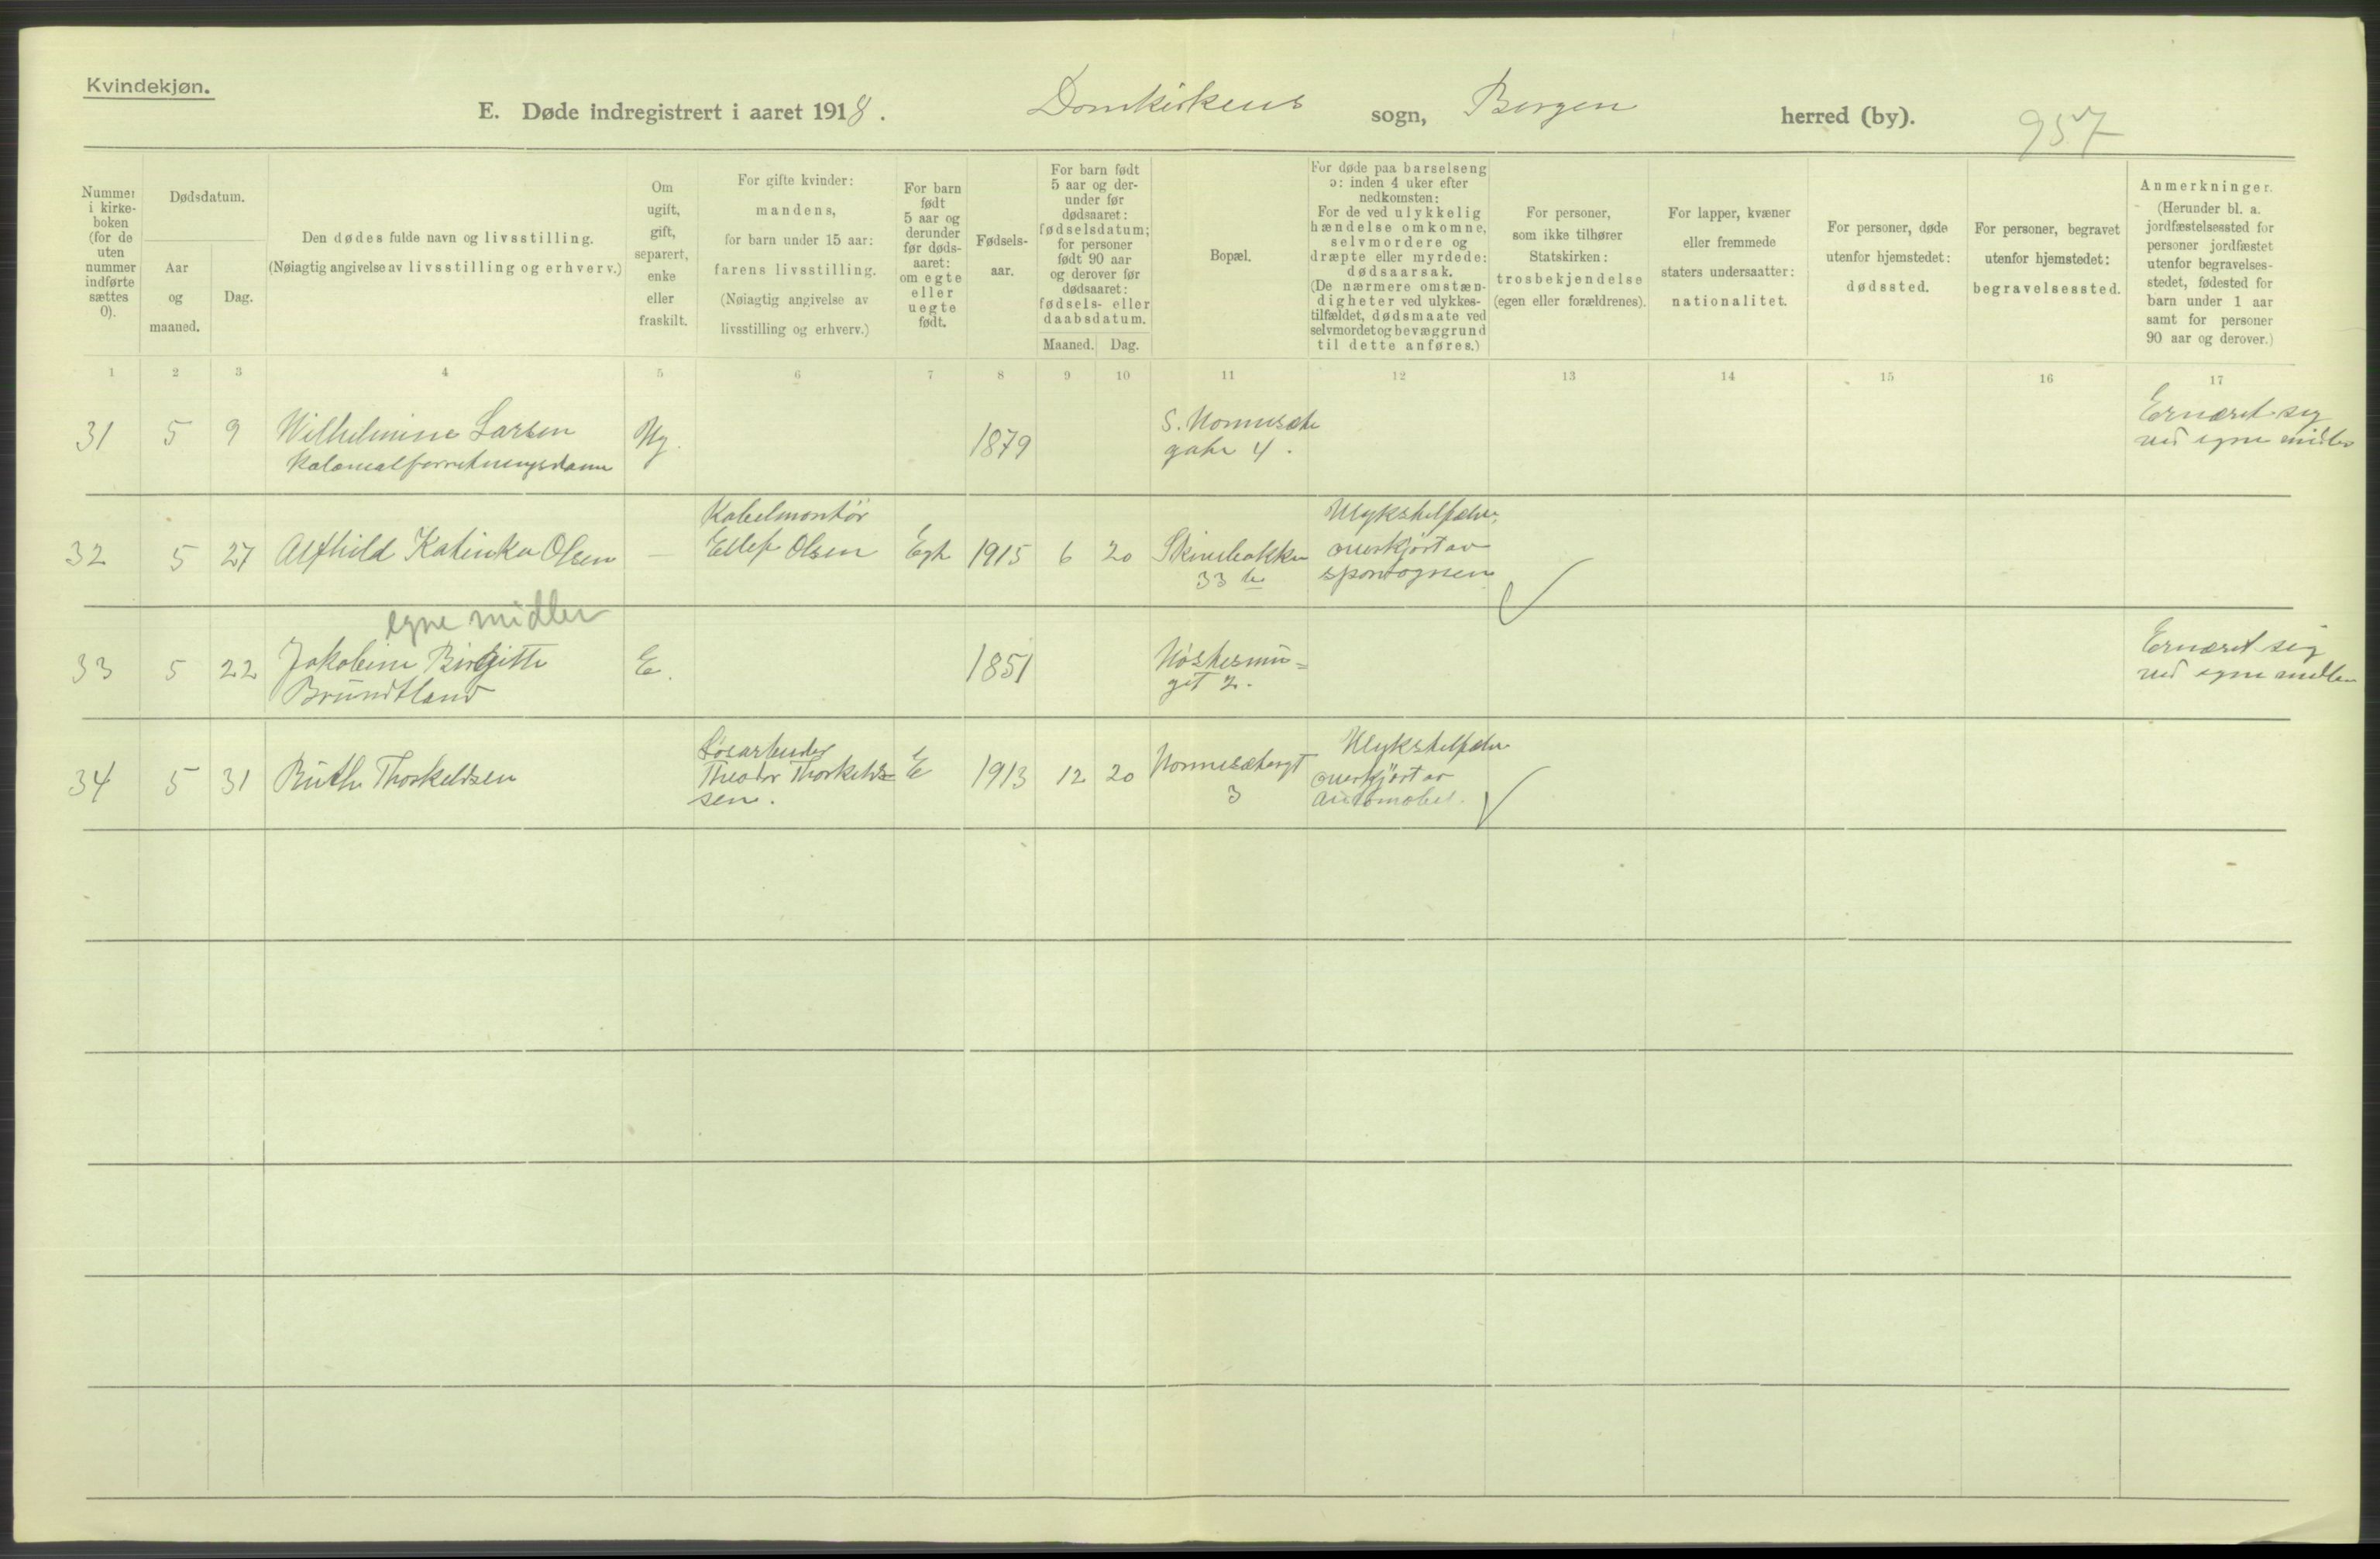 Kvindekjøn.
E. Døde indregistrert i aaret 1918. Domkirkens sogn, Bergen herred (by). 957
Nummer i kirkeboken (for de uten nummer indførte sættes 0).
Dødsdatum.
Aar og maaned.
Dag.
Den dødes fulde navn og livsstilling.
(Nøiagtig angivelse av livsstilling og erhverv.)
Om ugift, gift, separert, enke eller fraskilt.
For gifte kvinder:
mandens,
for barn under 15 aar:
farens livsstilling.
(Nøiagtig angivelse av
livsstilling og erhverv.)
For barn født 5 aar og derunder før dødsaaret: om egte eller uegte født.
Fødselsaar.
For barn født 5 aar og derunder før dødsaaret: fødselsdatum; for personer født 90 aar og derover før dødsaaret: fødsels- eller daabsdatum.
Maaned. Dag.
Bopæl.
For døde paa barselseng
ɔ: inden 4 uker efter
nedkomsten:
For de ved ulykkelig
hændelse omkomne,
selvmordere og
dræpte eller myrdede:
dødsaarsak.
(De nærmere omstæn-
digheter ved ulykkes-
tilfældet, dødsmaate ved
selvmordet og bevæggrund
til dette anføres.)
For personer,
som ikke tilhører
Statskirken:
trosbekjendelse
(egen eller forældrenes).
For lapper, kvæner
eller fremmede
staters undersaatter:
nationalitet.
For personer, døde
utenfor hjemstedet:
dødssted.
For personer, begravet
utenfor hjemstedet:
begravelsessted.
Anmerkninger.
(Herunder bl. a.
jordfæstelsessted for
personer jordfæstet
utenfor begravelses-
stedet, fødested for
barn under 1 aar
samt for personer
90 aar og derover.)
1 2 3 4 5 6 7 8 9 10 11 12 13 14 15 16 17
31 5 9 Wilhelmine Larsen Ug. 1879 S. Nonnesæter
kolonialforretningsdame gate 4. Ernæret sig
ved egne midler
Kabelmontör Ulykstilfælde,
32 5 27 Alfhild Katinka Olsen — Ellef Olsen Egte 1915 6 20 Skivebakken overkjört av
33 b sporvognen
egne midler
33 5 22 Jakobine Birgitte E. 1851 Nöstesmu= Ernæret sig
Brundtland get 2. ved egne midler
Lösarbeider Ulykstilfælde
34 5 31 Ruth Thorkeldsen Theodor Thorkeld= E 1913 12 20 Nonnesætergt overkjört av
sen. 3 Automobil.